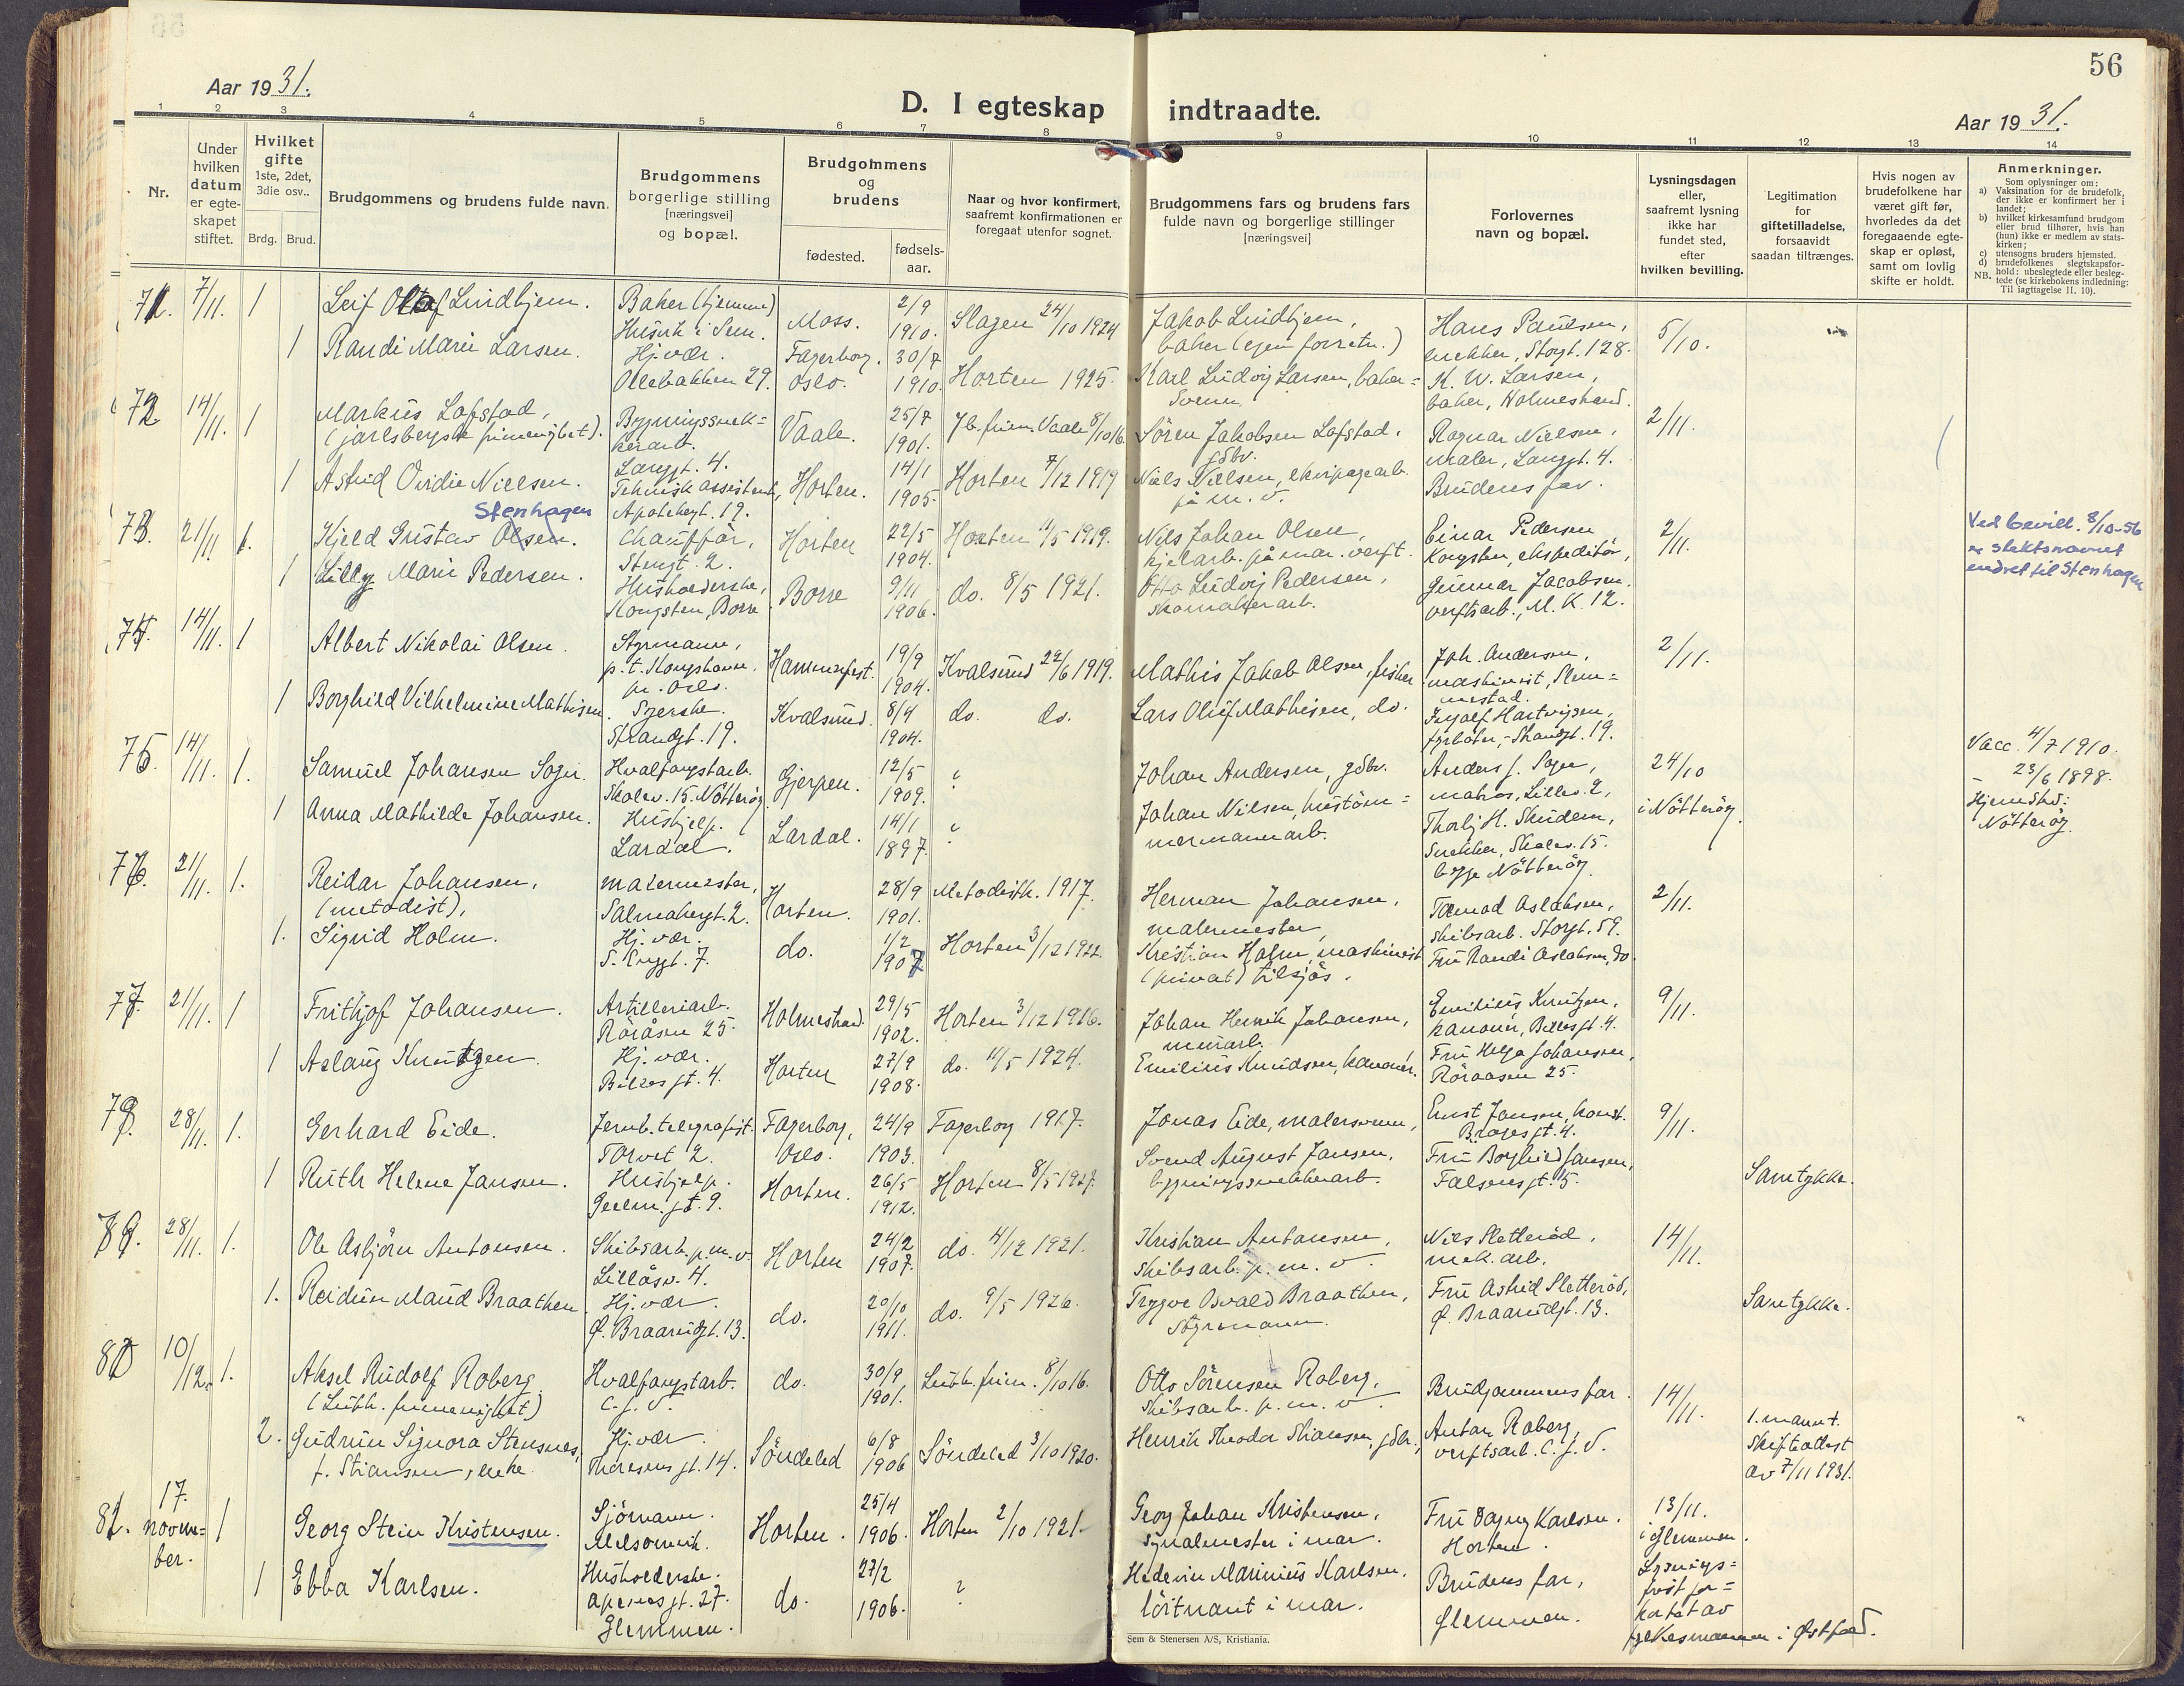 56
Aar 1931.
D. I egteskap indtraadte.
Aar 1931.
1 2 3 4 5 6 7 8 9 10 11 12 13 14
Nr.
Under hvilken datum er egteskapet stiftet.
Hvilket gifte 1ste, 2det, 3die osv..
Brdg. Brud.
Brudgommens og brudens fulde navn.
Brudgommens borgerlige stilling [næringsvei] og bopæl.
Brudgommens og brudens
fødested.
fødsels-aar.
Naar og hvor konfirmert, saafremt konfirmationen er foregaat utenfor sognet.
Brudgommens fars og brudens fars fulde navn og borgerlige stillinger [næringsvei]
Forlovernes navn og bopæl.
Lysningsdagen eller, saafremt lysning ikke har fundet sted, efter hvilken bevilling.
Legitimation for giftetilladelse, forsaavidt saadan tiltrænges.
Hvis nogen av brudefolkene har været gift før, hvorledes da det foregaaende egteskap er opløst, samt om lovlig skifte er holdt.
Anmerkninger.
Som oplysninger om:
a) Vaksination for de brudefolk, der ikke er konfirmert her i landet;
b) hvilket kirkesamfund brudgom eller brud tilhører, hvis han (hun) ikke er medlem av statskirken;
c) utensogns bruders hjemsted.
d) brudefolkenes slegtskapsforhold: ubeslegtede eller beslegtede (se kirkebokens indledning: Til iagttagelse II. 10).
NB.
71. 7/11. 1 Leif Olaf Lindhjem. Baker (hjemme) Husvik i Sem. Moss. 2/9 1910. Slagen 24/10 1924 Jakob Lindhjem, baker (egen forretn.) Hans Paulsen, snekker, Storgt. 128. 5/10.
1 Randi Marie Larsen. Hj. vær. Ollebakken 29. Fagerborg. Oslo. 30/7 1910. Horten 1925. Karl Ludvig Larsen, bakersvenn K. W. Larsen, baker, Holmestrand.
72 14/11. 1 Markus Lofstad, (jarlsbergske frimenighet). Bygningssnekkerarb. Langgt. 4. Vaale. 25/7 1901. Jb. frim. Vaale 8/10 16 Søren Jakobsen Lofstad, gdbr. Ragnar Nielsen, maler, Langgt. 4. 2/11.
1 Astrid Ovidie Nielsen. Teknisk assistent, Apotekergt. 12. Horten. 14/1 1905. Horten 7/12 1919 Niels Nielsen, ekvipagearb. på m. v. Brudens far.
73. 21/11 1. Kjeld Gustav Olsen. Stenhagen Chauffør, Stengt. 2. Horten 22/5 1904. Horten 11/5 1919. Nils Johan Olsen, kjelarb. på mar. verft. Einar Pedersen Kongsten, ekspeditør, 2/11. Ved bevill. 8/10-56 er slektsnavnet endret til Stenhagen
1 Lilly Marie Pedersen. Husholderske, Kongsten, Borre Borre 9/11 1906. do. 8/5 1921. Otto Ludvig Pedersen, skomakerarb. Gunnar Jacobsen. verftsarb., M. K. 12.
74. 14/11. 1 Albert Nikolai Olsen. Styrmann, p.t. Kongshavn, pr. Oslo. Hammerfest. 19/9 1904. Kvalsund 22/6 1919. Mathis Jakob Olsen, fisker Joh. Andersen, maskinist, Slemmestad. 2/11.
1 Borghild Vilhelmine Mathisen. Syerske. Strandgt. 19. Kvalsund. 8/4 1904. do. do. Lars Oluf Mathisen, do. Ingolf Hartvigsen, fyrbøter, Strandgt. 19.
75. 14/11. 1. Samuel Johansen Soger. Hvalfangstarb. Skolev. 15. Nøtterøy. Gjerpen. 12/5 1909. ? Johan Andersen, gdbr. Anders J. Soger, matros, Lillev. 2, 24/10 i Nøtterøy. Vacc. 4/7 1910.
1 Anna Mathilde Johansen. Hushjelp. Lardal. Lardal. 14/1 1897. ? Johan Nielsen, hustømmermannarb. Thorbj. H. Skudem, Snekker, Skolev. 15. begge Nøtterøy. – 23/6 1898. Hjemsted: Nøtterøy.
76. 21/11. 1. Reidar Johansen, (metodist), malermester, Salmakergt. 2. Horten. 28/9 1901. Metodistk. 1917. Herman Johansen, malermester, Tormod Aslaksen, skibsarb. Storgt. 59. 2/11.
1. Sigrid Holm. Hj. vær. S. Kryggt. 7. do. 1/2 1907 Horten 3/12 1922. Kristian Holm, maskinist (privat) tilsjøs. Fru Randi Aslaksen, do.
77. 21/11. 1 Frithjof Johansen. Artilleriarb. Røråsen 25. Holmestrand. 29/5 1902. Horten 3/12 1916. Johan Henrik Johansen, murarb. Emilius Knutzen, kanonér, Bilzesgt. 4. 9/11.
1 Aslaug Knutzen. Hj. vær. Bilzesgt. 4. Horten 27/9 1908. do. 11/5 1924. Emilius Knudsen, kanonér. Fru Helga Johansen, Røraasen 25.
78. 28/11. 1. Gerhard Eide. Jernb. telegrafist. Torvet 2. Fagerborg, Oslo. 24/9 1903. Fagerborg 1917. Jonas Eide, malersvenn, Ernst Jansen, konst. Bragesgt. 4. 9/11.
1 Ruth Helene Jansen. Hushjelp. gt. 9. Horten. 26/5 1912. Horten 8/5 1927. Svend August Jansen, bygningssnekkerarb. Fru Borghild Jansen, Falsensgt. 5. Samtykke.
79. 28/11. 1. Ole Asbjørn Antonsen. Skibsarb. p. m. v. Lillåsv. 4. Horten 24/2 1907. do. 4/12 1921. Kristian Antonsen, skibsarb. p. m. v. Nils Sletterød, mek. arb. 14/11.
1. Reidun Maud Braathen Hj. vær. Ø. Braarudgt. 13. do. 20/10 1911. do. 9/5 1926. Trygve Osvald Braathen, Styrmann. Fru Astrid Sletterød, Ø. Braarudgt. 13. Samtykke.
80 10/12. 1. Aksel Rudolf Roberg. (Luth. frimenighet) Hvalfangstarb. C. J. V. do. 30/9 1901. Luth. frim. 8/10 16. Otto Sørensen Roberg, skibsarb. p. m. v. Brudgommens far. 14/11.
2. Gudrun Signora Stensnes, f. Stiansen, enke. Hj. vær. Thoresensgt. 14. Søndeled 6/8 1906 Søndeled 3/10 1920. Henrik Theodor Stiansen, gdbr. Anton Roberg, verftsarb. C. J. V. 1. mann †. Skifteattest av 7/11 1931.
81. 17. november. 1 Georg Stein Kristensen. Sjømann. Melsomvik. Horten. 25/4 1906. Horten 2/10 1921. Georg Johan Kristensen, signalmester i mar. Fru Dagny Karlsen. Horten. 13/11. i Glemmen.
1 Ebba Karlsen. Husholderske. Apenesgt. 27. Glemmen. do. 27/2 1906. ? Marinius Karlsen, løitnant i mar. Brudens far, Glemmen. Lysningsfrist forkortet av fylkesmannen i Østfold.
Sem & Stenersen A/S, Kristiania.